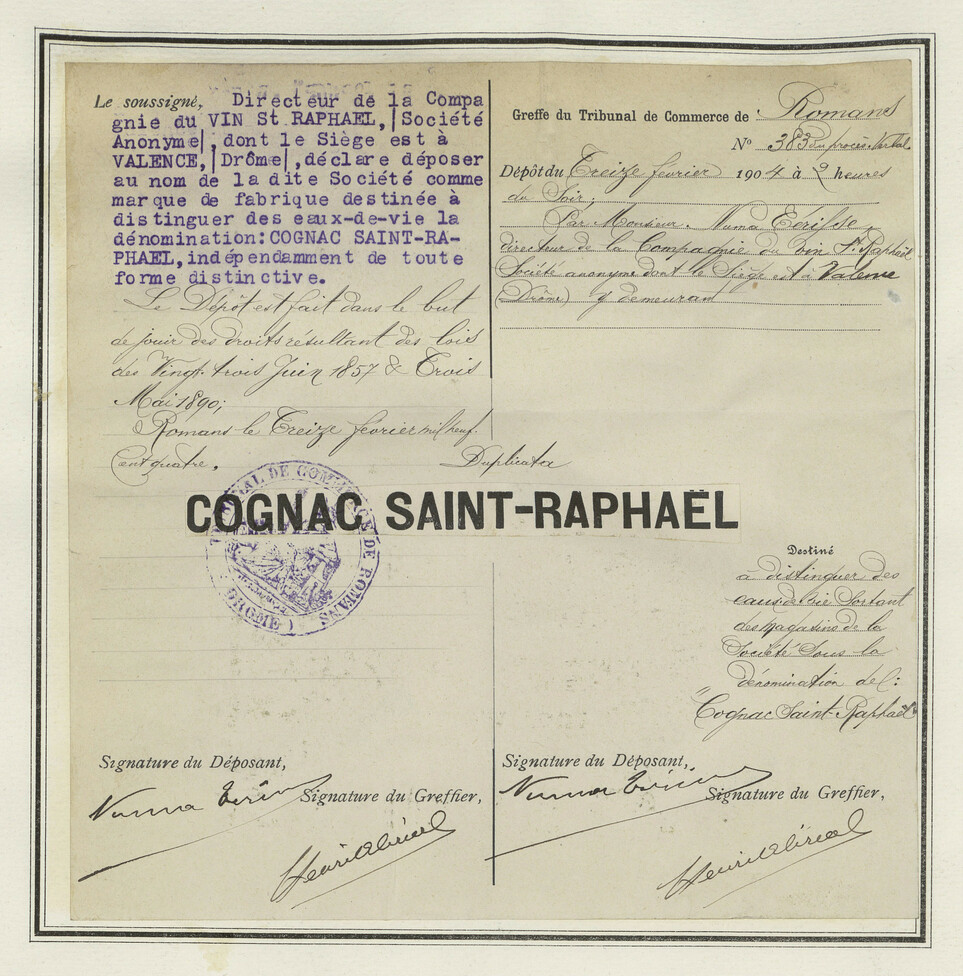 Le soussigné, Directeur de la Compa
gnie du VIN St RAPHAEL,|Société
Anonyme|,dont le Siège est à
VALENCE,|Drôme|,déclare déposer
au nom de la dite Société comme
marque de fabrique destinée à
distinguer des eaux-de-vie la
dénomination:COGNAC SAINT-RA-
PHAEL,indépendamment de toute
forme distinctive.
Le Dépôt est fait dans le but
de jouir des droits résultant des lois
des Vingt trois Juin 1857 & Trois
Mai 1890;
Romans le Treize fevrier mil neuf
Cent quatre.
Duplicata
Greffe du Tribunal de Commerce de Romans
N° 383 du procès-Verbal
Dépôt du Treize fevrier 1904 à 2 heures
du Soir;
Par Monsieur Numa
directeur de la Compagnie du vin St Raphaël
Société anonyme dont le Siège est à Valence
(Drôme) y demeurant
COGNAC SAINT-RAPHAËL
TRIBUNAL DE COMMERCE DE ROMANS
(DROME)
Destiné
à distinguer des
eaux de vie Sortant
des Magasins de la
Société Sous la
dénomination de:
"Cognac Saint-Raphaël"
Signature du Déposant,
Numa
Signature du Greffier,
Signature du Déposant,
Numa
Signature du Greffier,